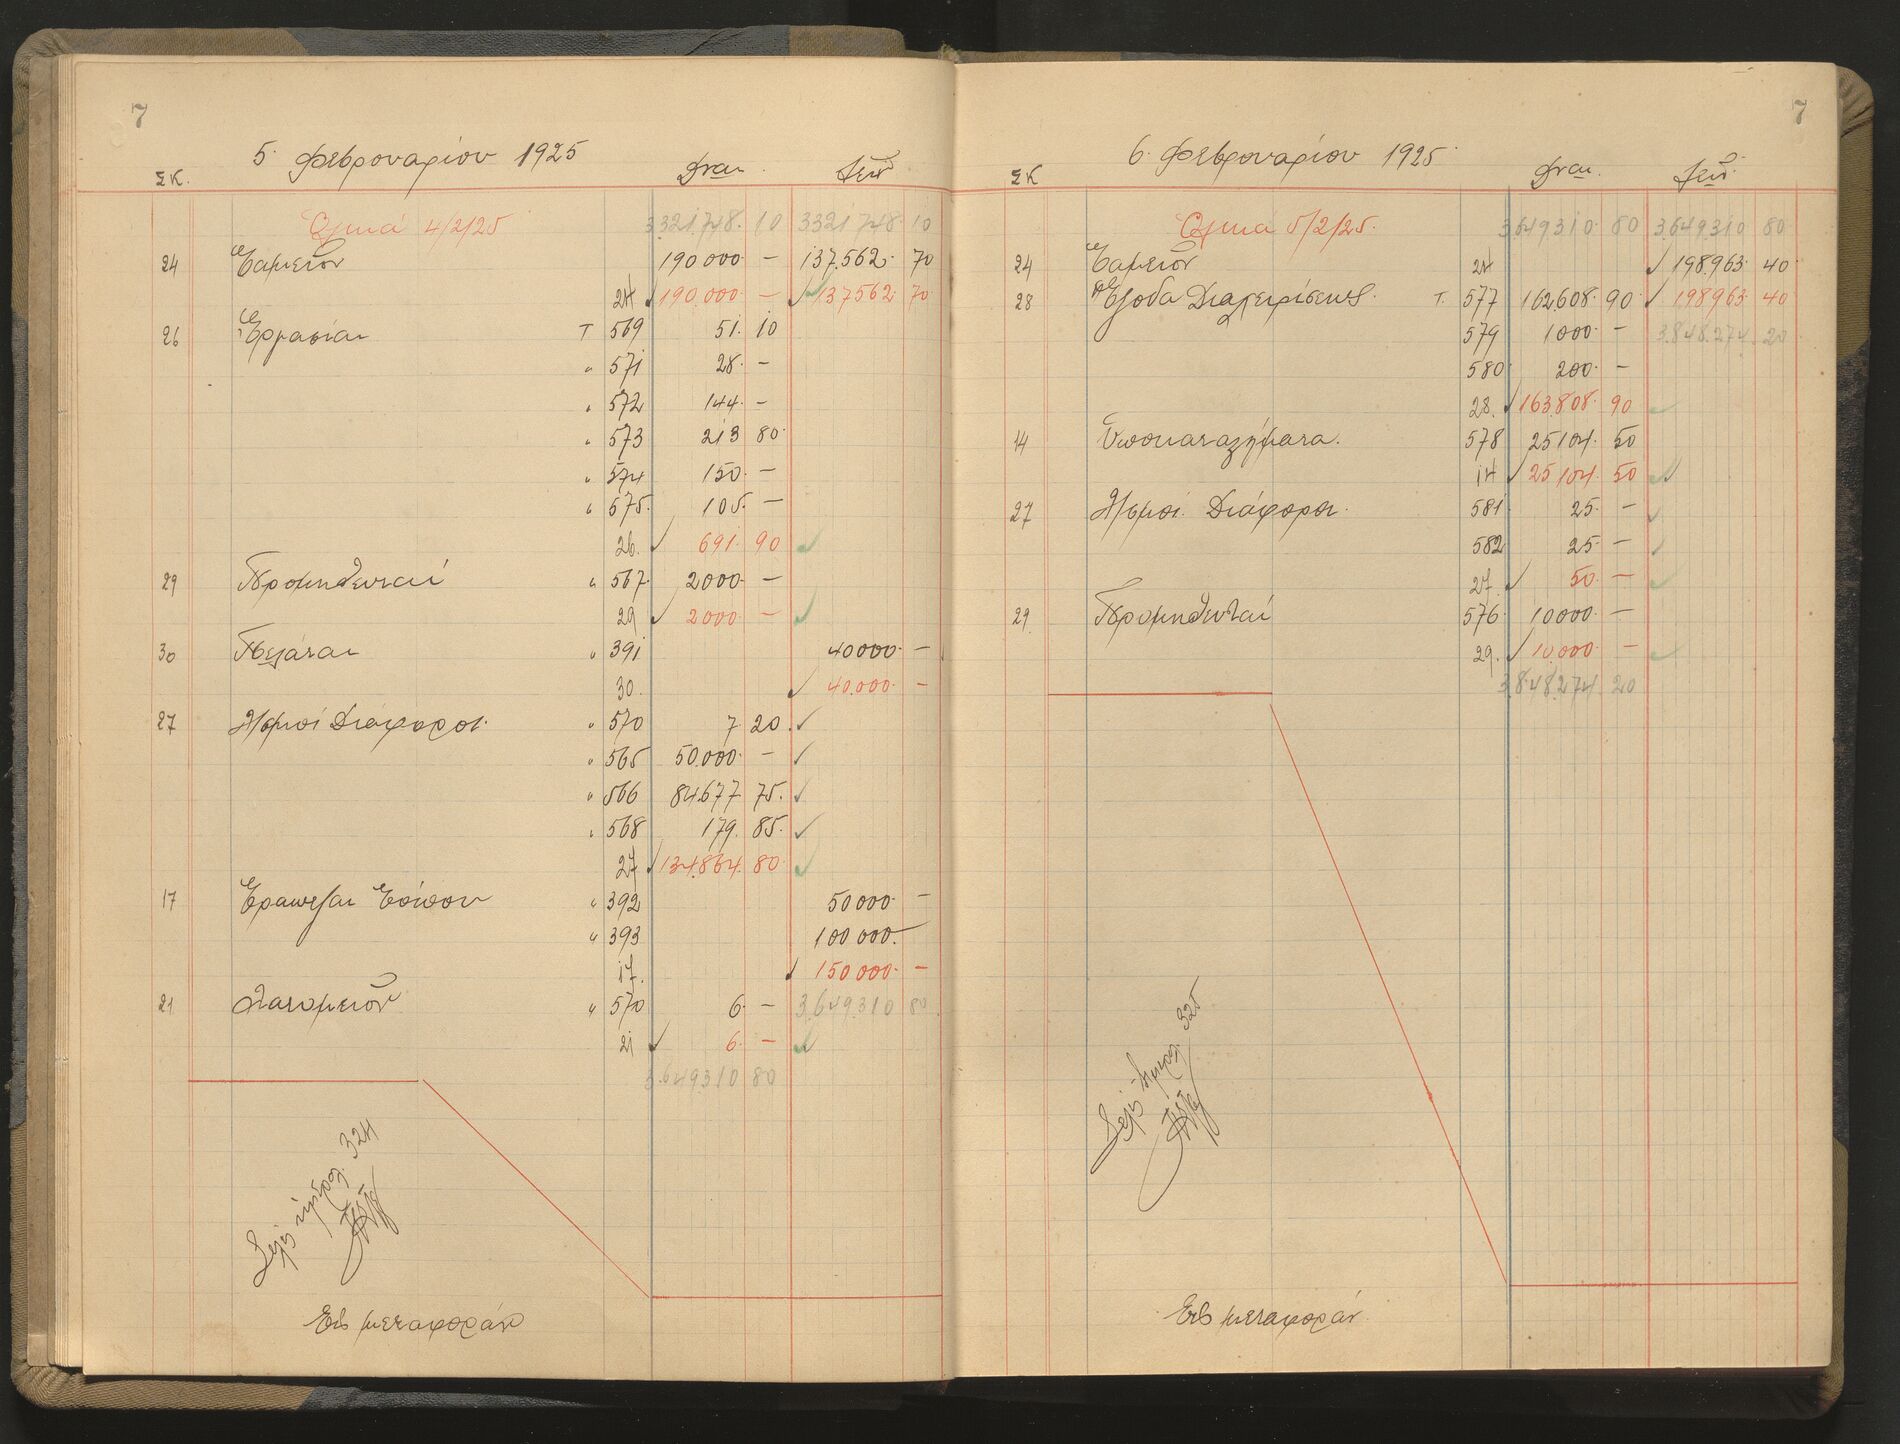 7
5 Φεβρουαρίου 1925
Σ.Κ.
Ολικά 4/2/25 3321.748. 10 3321748. 10
24 Ταμείον 190000 — 137.562. 70
24 190.000 — 137562 70
26 Εργασίαι Τ 569 51. 10
" 571 28 —
" 572 144 —
" 573 213 80
" 574 150 —
" 575 105 —
26. 691. 90
29 Προμηθευταί " 567 2000 —
29 2000 —
30 Πελάται " 391 40000 —
30. 40.000 —
27 Λ/σμοί Διάφοροι " 570 7 20
" 565 50.000 —
" 566 84677 75
" 568 179. 85
27 134.864. 80
17 Τράπεζαι Τόπου " 392 50000 —
" 393 100000.
17. 150000 —
21 Λατομείον " 570 6 — 3.649.310 80
21 6 —
3.649.310 80
324
Εις μεταφοράν
7
6 Φεβρουαρίου 1925
Σ.Κ.
Ολικά 5/2/25. 3.649310. 80 3.649.310 80
24 Ταμείον 24 198.963. 40
28 Έξοδα Διαχειρίσεως Τ. 577 162.608. 90 198963 40
579 1000 — 3.848.274. 20
580 200 —
28. 163.808. 90
14 Υποκαταστήματα. 578 25104. 50
14 25104. 50
27 Λ/σμοί Διάφοροι. 581 25 —
582 25 —
27. 50 —
29 Προμηθευταί 576 10000 —
29. 10.000 —
3.848.274. 20
325
Εις μεταφοράν